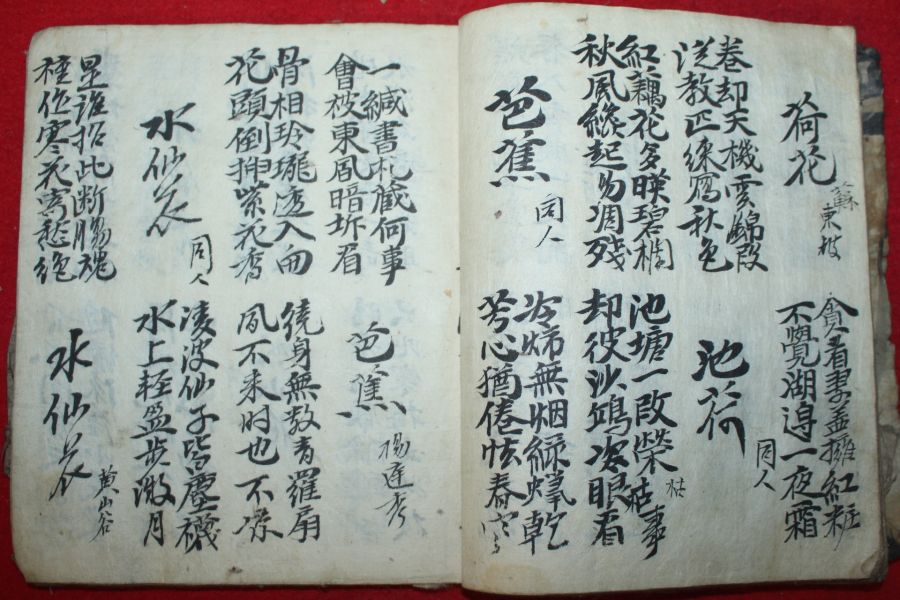 荷花
蘇東坡
貪看翠盖擁紅粧
不覺湖邊一夜霜
卷却天機雲錦段
從教匹練寫秋色
池荷
同人
紅藕花多映碧欄
秋風纔起易凋殘
池塘一段榮枯事
枯
却彼沙鷗冷眼看
芭蕉
同人
冷燭無烟綠蠟乾
芳心猶倦怯春寒
一緘書札藏何事
會被東風暗坼眉
芭蕉
楊廷秀
骨相玲瓏透入窗
花頭倒揷紫花香
繞身無數青羅扇
風不来时也不凉
水仙花
同人
凌波仙子皆塵襪
水上輕盈步微月
是誰招此断膓魂
種位寒花寄愁絶
水仙花
黄山谷